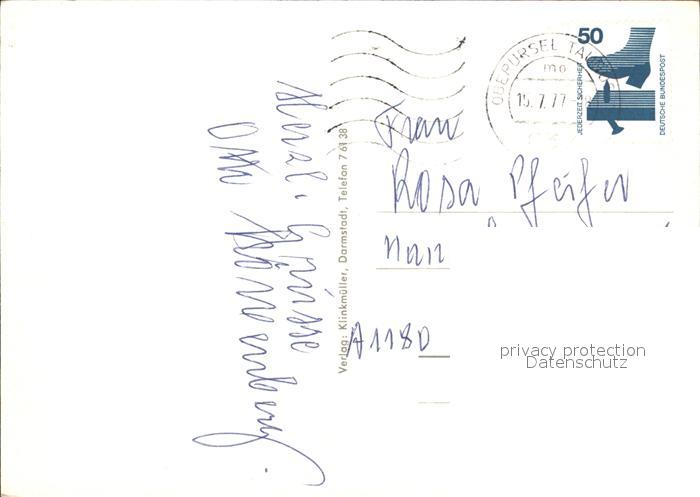 Herzl. Grüsse
Otto
Verlag: Klinkmüller, Darmstadt, Telefon 7 61 38
OBERURSEL TAUNUS
mo
15.7.77
50
JEDERZEIT SICHERHEIT
DEUTSCHE BUNDESPOST
Frau
Rosa Pfeifer
A1180
privacy protection
Datenschutz